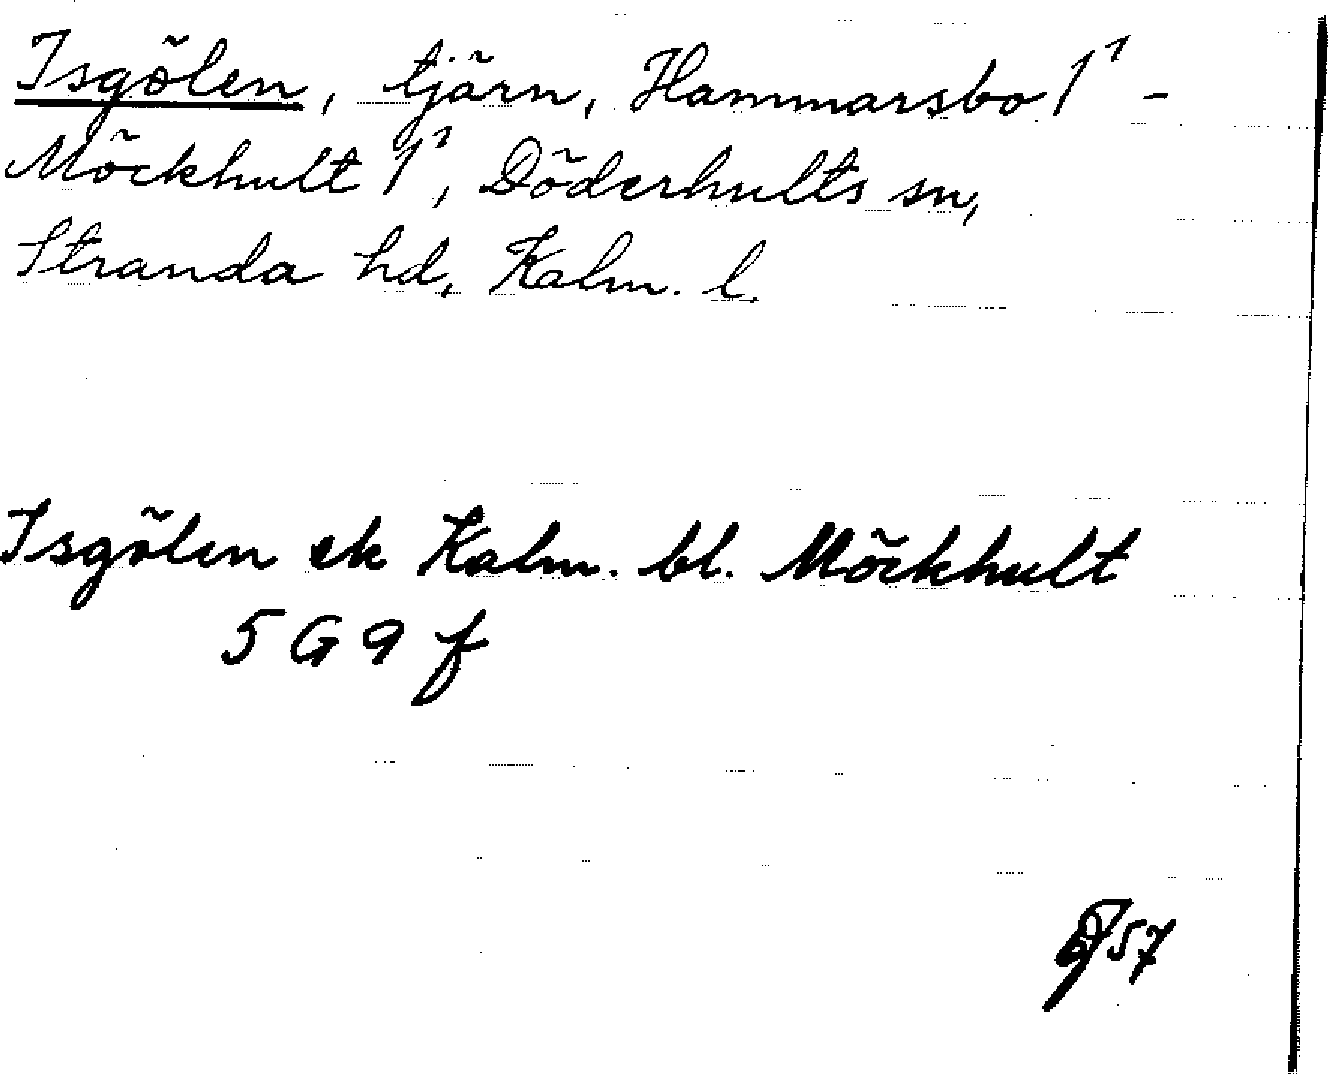 Isgölen, tjärn, Hammarsbo 1¹ -
Möckhult 1¹, Döderhults sn,
Stranda hd, Kalm. l.
Isgölen ek Kalm. bl. Möckhult
5 G 9 f
57